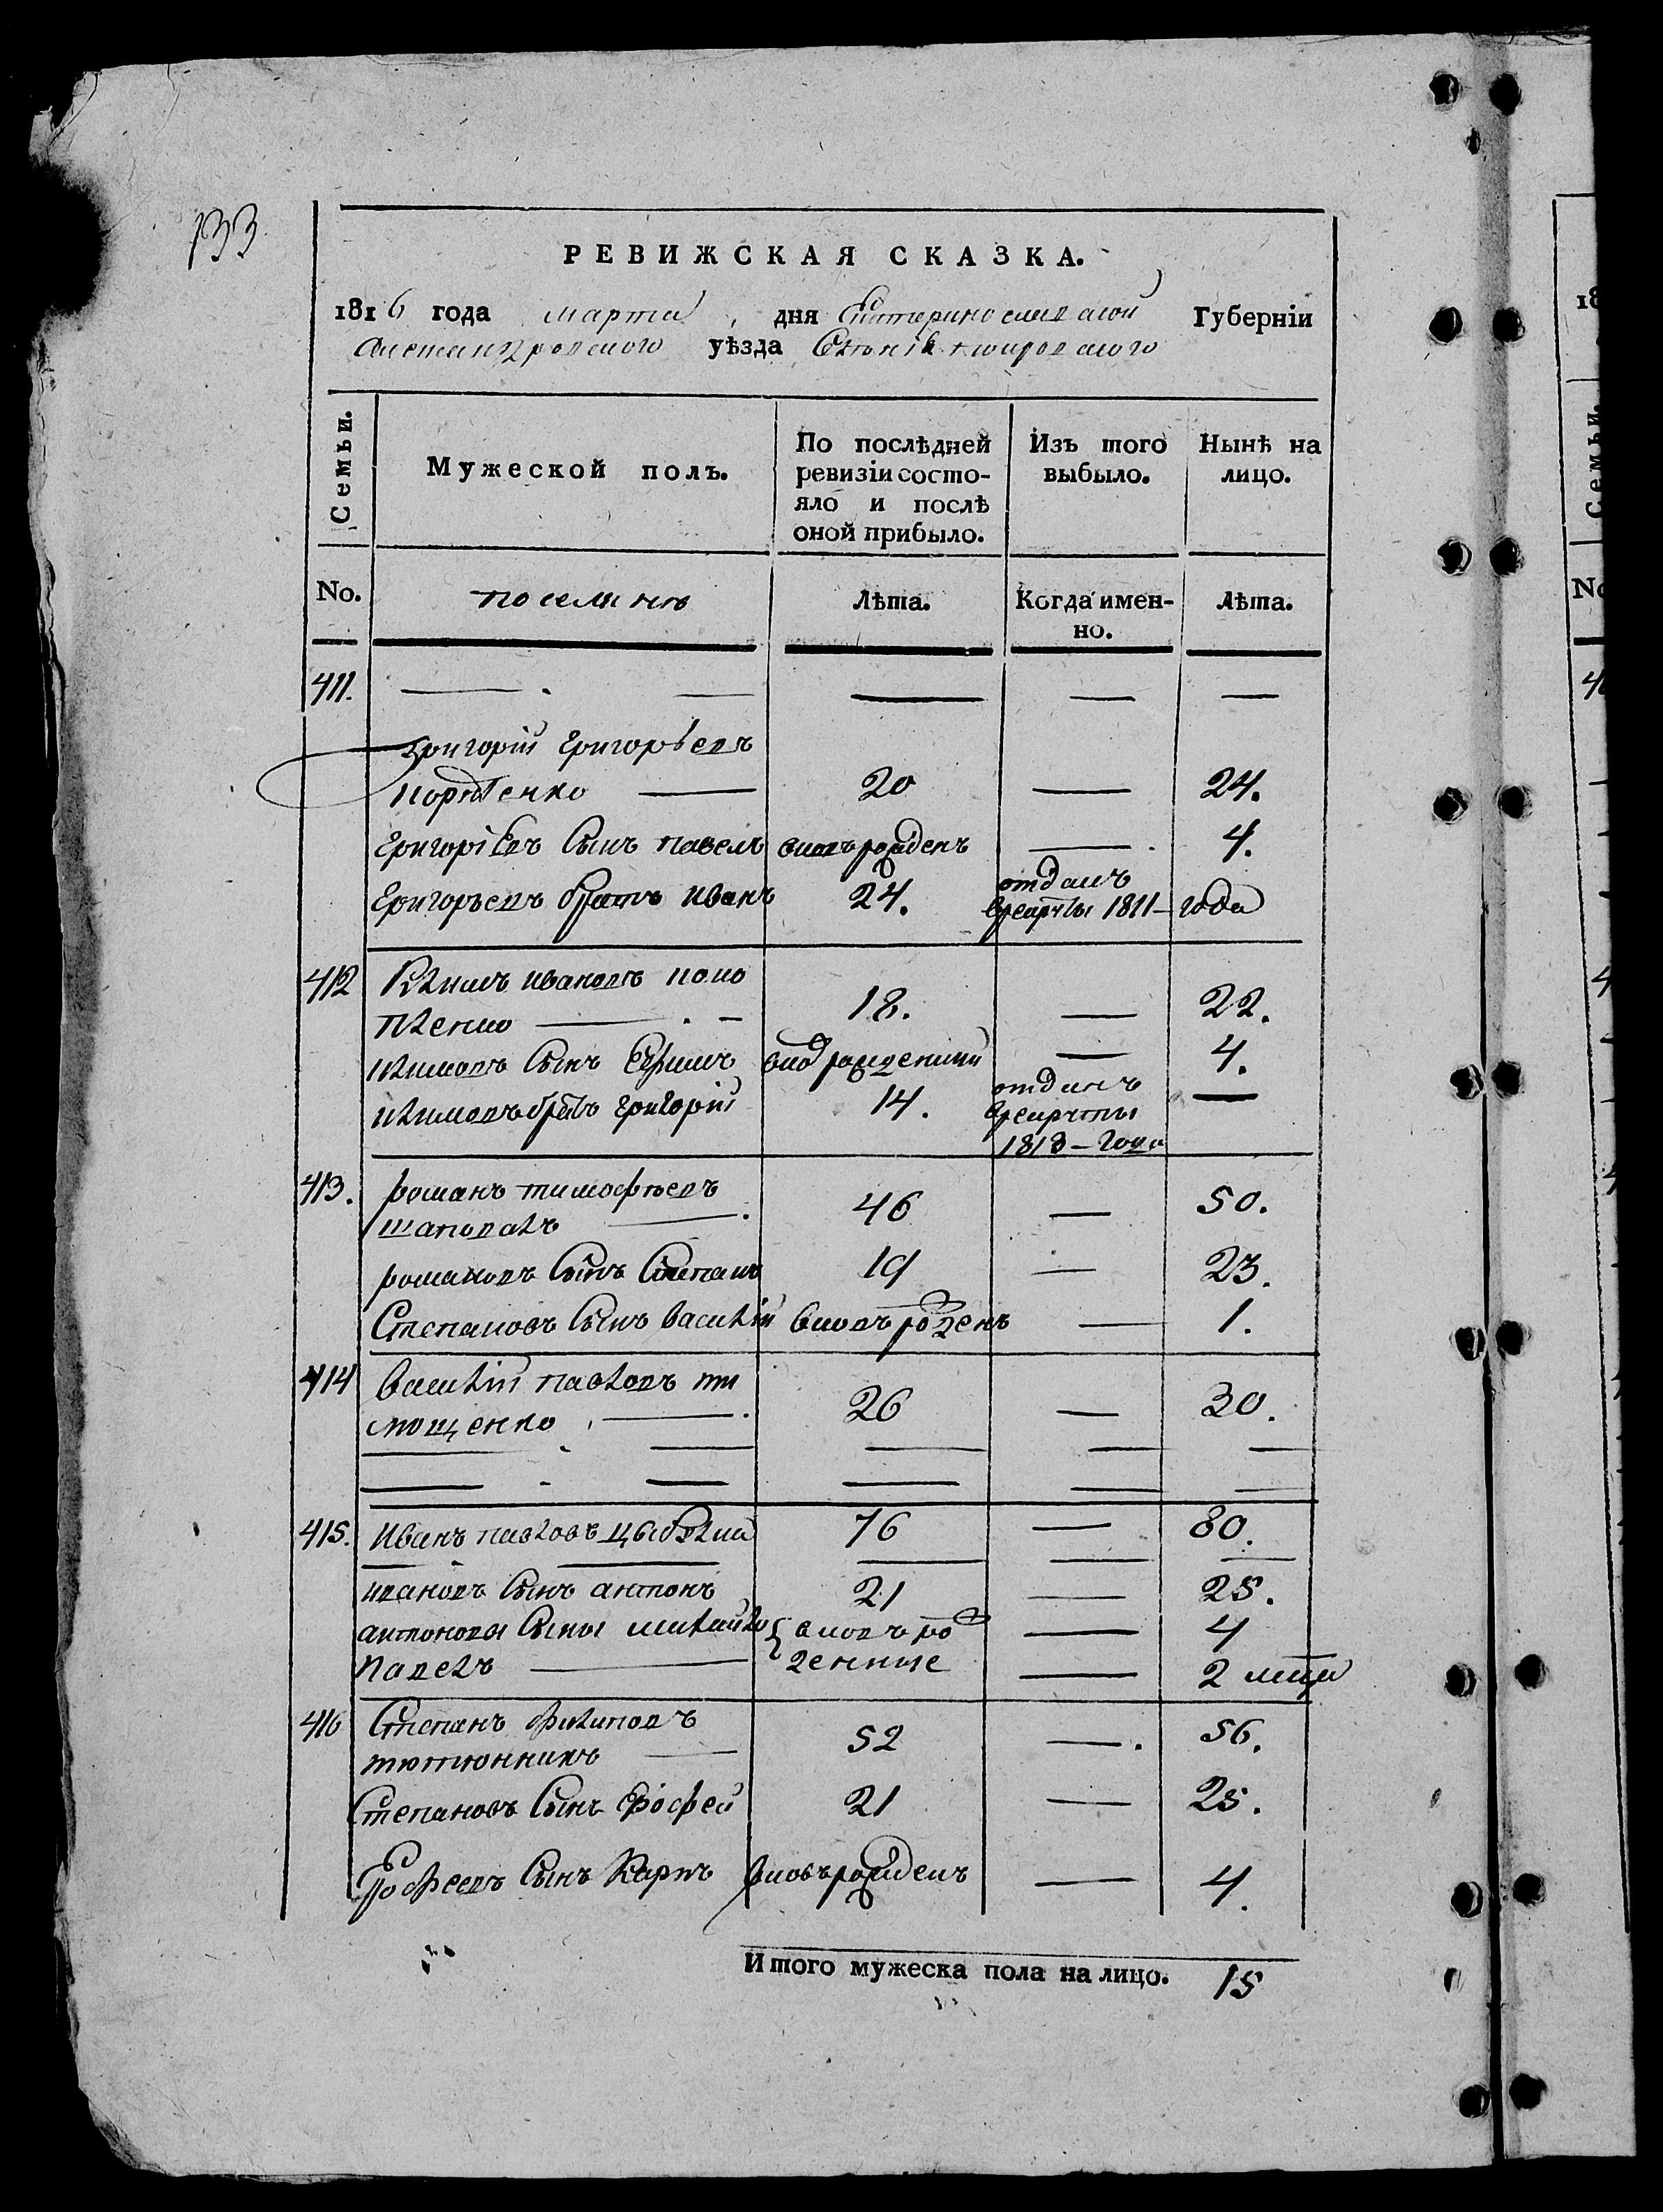 133
РЕВИЖСКАЯ СКАЗКА.
1816 года марта дня Екатеринославской Губерніи
Александровского уѣзда
Семьи.
Мужеской полъ.
По послѣдней ревизіи состояло и послѣ оной прибыло.
Изъ того выбыло.
Нынѣ на лицо.
No.
поселянъ
Лѣта.
Когда именно.
Лѣта.
411. — — — — —
Григорій Григорьевъ
— 20 — 24.
Григоріевъ Сынъ павелъ вновъ рожденъ — 4.
Григорьевъ братъ иванъ 24. отданъ
врекруты 1811 — года
412 Климъ ивановъ коно
пленко — 18. — 22.
климовъ Сынъ Ефимъ внов рожденный — 4.
климовъ братъ григорій 14. отданъ —
врекруты
1813 — года
413. романъ тимофѣевъ
шаповалъ — 46 — 50.
романовъ Сынъ Степанъ 19 — 23.
Степановъ Сынъ василій вновъ рожденъ — 1.
414 василій павловъ ти
мощенко — 26 — 30.
— — — — —
— — — — —
415. Иванъ павловъ 76 — 80.
— — — — —
ивановъ Сынъ антонъ 21 — 25.
антоновы Сыны михайло вновъ ро — 4
павелъ — жденные — 2 мсца
416 Степанъ филиповъ
тютюнникъ — 52 — 56.
Степановъ Сынъ Ерофей 21 — 25.
Ерофеевъ Сынъ Карпъ вновъ рожденъ — 4.
Итого мужеска пола на лицо. 15
18
Семьи.
No